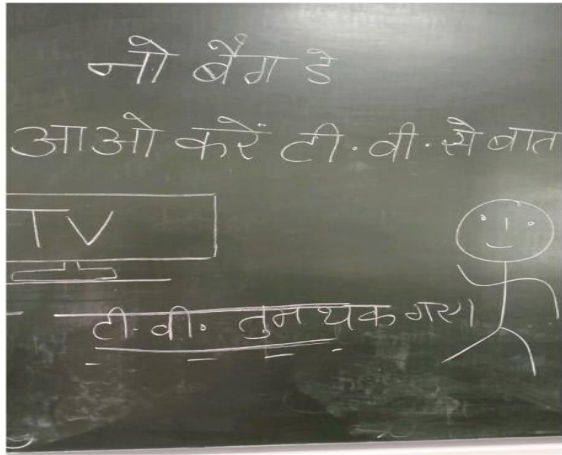 नो बैग डे
आओ करें टी.वी. से बात
TV
टी.वी. तुम थक गए।